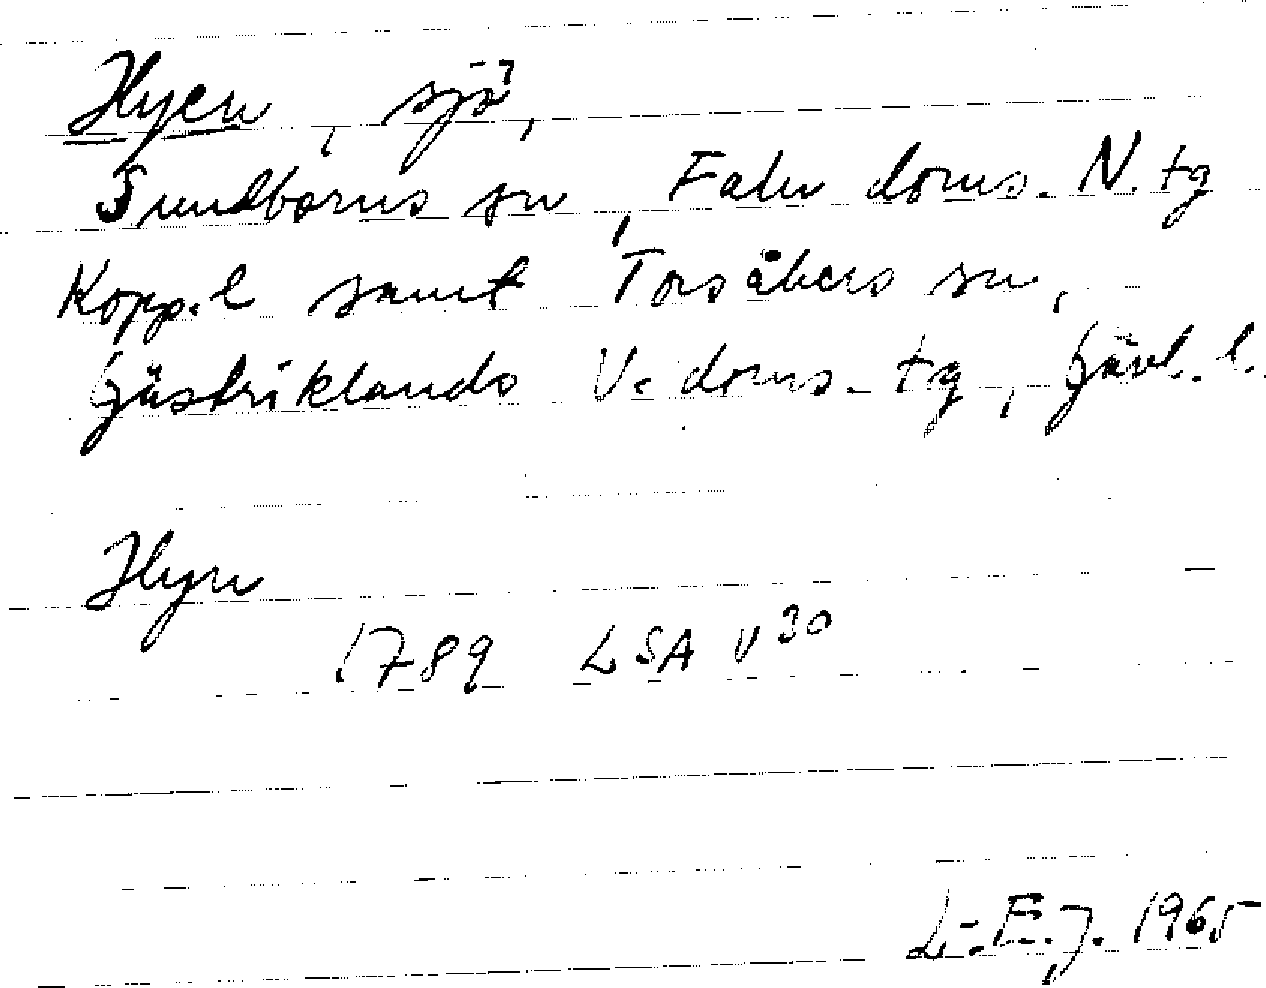 Hyen, sjö,
Sundborns sn, Falu doms. N. tg
Kopp. l samt Torsåkers sn,
Gästriklands V. doms. tg, Gävl. l.
Hyn
1789 LSA V 30
L.-E. J. 1965